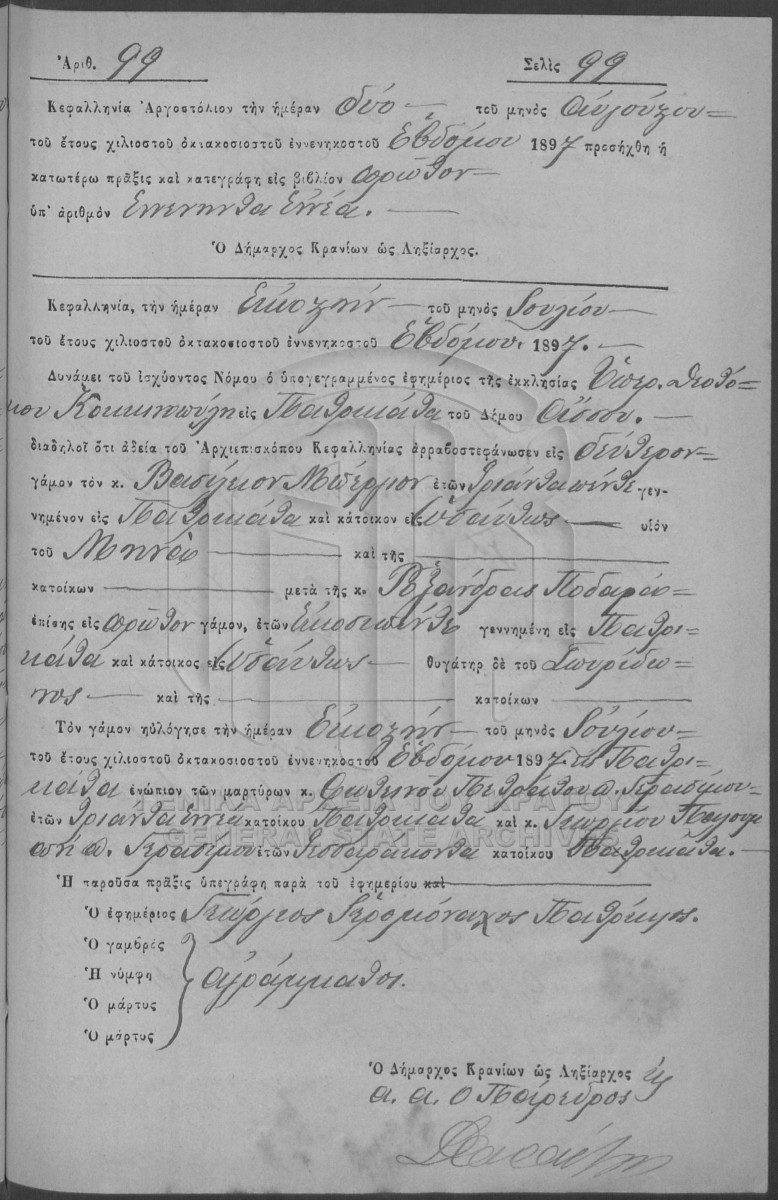 Ἀριθ. 99 Σελὶς 99
Κεφαλληνία Ἀργοστόλιον τὴν ἡμέραν δύο τοῦ μηνὸς Αὐγούστου
τοῦ ἔτους χιλιοστοῦ ὀκτακοσιοστοῦ ἐννενηκοστοῦ Ἑβδόμου 1897 προσήχθη ἡ
κατωτέρω πρᾶξις καὶ κατεγράφη εἰς βιβλίον πρῶτον
ὑπ' ἀριθμὸν Ἐννενῆντα Ἐννέα.
Ὁ Δήμαρχος Κρανίων ὡς Ληξίαρχος.
Κεφαλληνία, τὴν ἡμέραν Εἰκοστήν τοῦ μηνὸς Ἰουλίου
τοῦ ἔτους χιλιοστοῦ ὀκτακοσιοστοῦ ἐννενηκοστοῦ Ἑβδόμου 1897.
Δυνάμει τοῦ ἰσχύοντος Νόμου ὁ ὑπογεγραμμένος ἐφημέριος τῆς ἐκκλησίας Ὑπερ. Θεοτό-
κου εἰς Πατρικάτα τοῦ Δήμου Ἄσσου.
διαδηλοῖ ὅτι ἀδείᾳ τοῦ Ἀρχιεπισκόπου Κεφαλληνίας ἀρραβοστεφάνωσεν εἰς δεύτερον
γάμον τὸν κ. Βασίλειον ἐτῶν τριάντα πέντε γεν-
νημένον εἰς Πατρικάτα καὶ κάτοικον εἰς ὡσαύτως υἱὸν
τοῦ Μηνᾶ καὶ τῆς
κατοίκων μετὰ τῆς κ. Ῥοξάνδρας Ποδαρᾶ
ἐπίσης εἰς πρῶτον γάμον, ἐτῶν Εἰκοσιπέντε γεννημένη εἰς Πατρι-
κάτα καὶ κάτοικος εἰς ὡσαύτως θυγάτηρ δὲ τοῦ Σπυρίδω-
νος καὶ τῆς κατοίκων
Τὸν γάμον ηὐλόγησε τὴν ἡμέραν Εἰκοστήν τοῦ μηνὸς Ἰουλίου
τοῦ ἔτους χιλιοστοῦ ὀκτακοσιοστοῦ ἐννενηκοστοῦ Ἑβδόμου 1897. εἰς Πατρι-
κάτα ἐνώπιον τῶν μαρτύρων κ. Φωτεινοῦ Πετράτου π. Γερασίμου
ἐτῶν τριάντα ἐννέα κατοίκου Πατρικάτα καὶ κ. Γεωργίου
π. Γερασίμου ἐτῶν Τεσσαράκοντα κατοίκου Πατρικάτα.
Ἡ παροῦσα πρᾶξις ὑπεγράφη παρὰ τοῦ ἐφημερίου καὶ
Ὁ ἐφημέριος Γεώργιος Ἱερομόναχος Πατρίκιος.
Ὁ γαμβρὸς
Ἡ νύμφη ἀγράμματοι.
Ὁ μάρτυς
Ὁ μάρτυς
Ὁ Δήμαρχος Κρανίων ὡς Ληξίαρχος
α. α. ο Πάρεδρος
ΓΕΝΙΚΑ ΑΡΧΕΙΑ ΤΟΥ ΚΡΑΤΟΥΣ
GENERAL STATE ARCHIVES